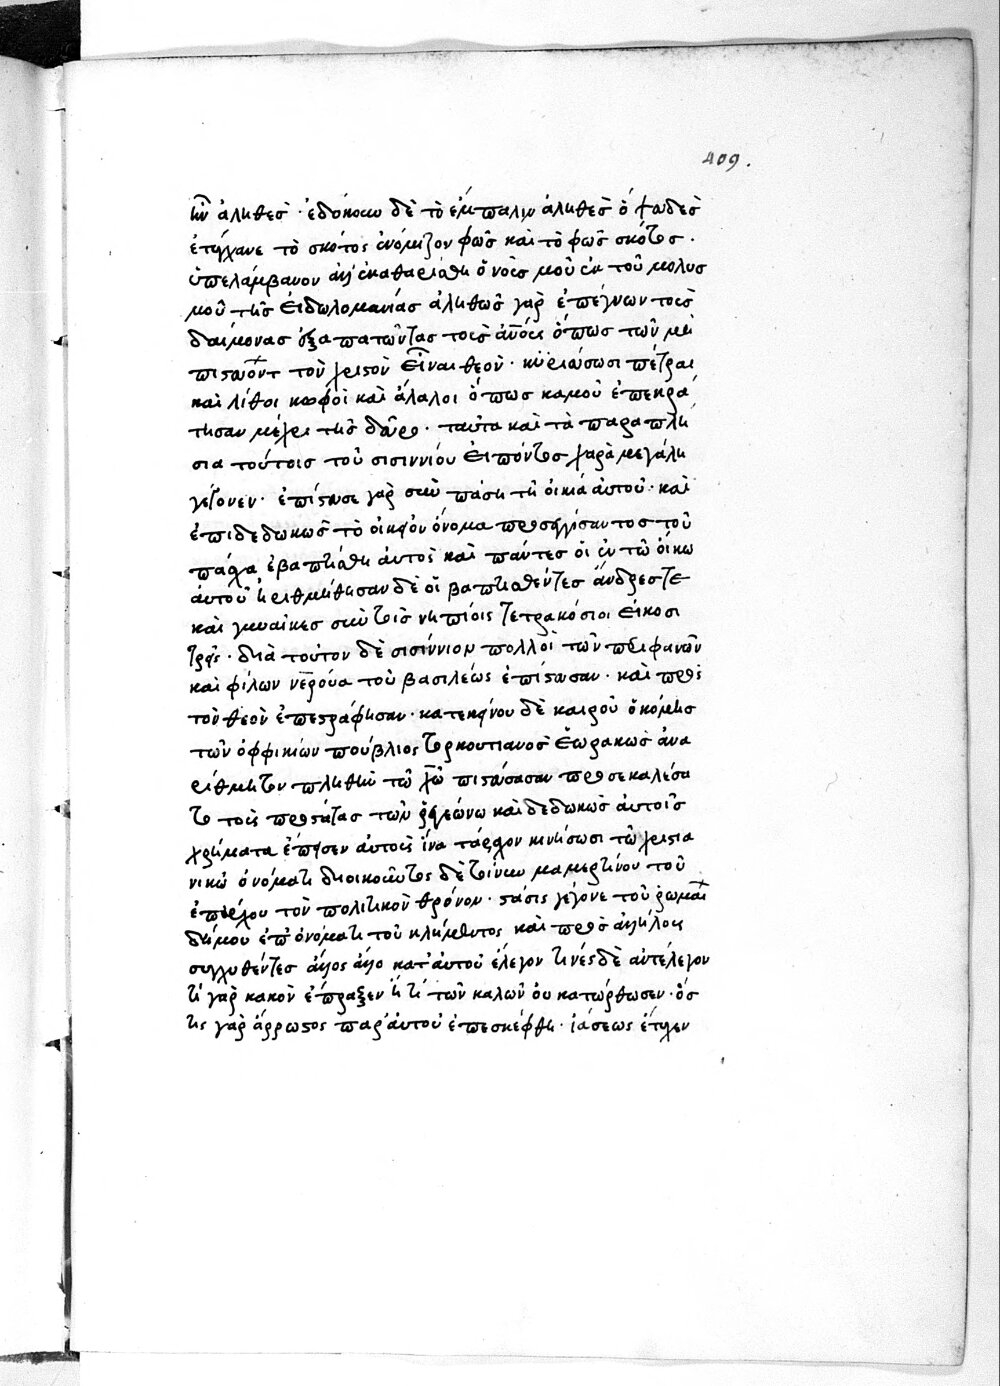 409.
ἦν ἀληθὲς · ἐδόκουν δὲ τὸ ἔμπαλιν ἀληθὲς ὃ ψευδὲς
ἐτύγχανε τὸ σκότος ἐνόμιζον φῶς καὶ τὸ φῶς σκότος ·
ὑπελάμβανον ἀλλ' ἐκαθαρίσθη ὁ νοῦς μοῦ ἐκ τοῦ μολυσ
μοῦ τῆς εἰδωλομανίας ἀληθῶς γὰρ ἐπέγνων τοὺς
δαίμονας ἐξαπατῶντας τοὺς ἀνους ὅπως τῶν μὴ
πιστευόντ τὸν χριστὸν εἶναι θεὸν · κυριεύσωσι πέτραι
καὶ λίθοι κωφοὶ καὶ ἄλαλοι ὅπως καμοῦ ἐπεκρά
τησαν μέχρι τῆς δεῦρο · ταῦτα καὶ τὰ παραπλή
σια τούτοις τοῦ σισιννίου εἰπόντος χαρὰ μεγάλη
γέγονεν · ἐπίστευσε γὰρ σὺν πάση τῆ οἰκία αὐτοῦ · καὶ
ἐπιδεδωκὼς τὸ οἰκεῖον ὄνομα προσεγγίσαντος τοῦ
πάσχα ἐβαπτίσθη αὐτὸς καὶ πάντες οἱ ἐν τῶ οἴκω
αὐτοῦ ἠριθμήθησαν δὲ οἱ βαπτισθέντες ἄνδρες τε
καὶ γυναίκες σὺν τοῖς νηπίοις τετρακόσιοι εἴκοσι
τρεῖς · διὰ τοῦτον δὲ σισίννιον πολλοὶ τῶν περιφανῶν
καὶ φίλων νερούα τοῦ βασιλέως ἐπίστευσαν · καὶ πρὸς
τὸν θεὸν ἐπεστράφησαν · κατ ἐκείνου δὲ καιροῦ ὁ κόμης
τῶν ὀφφικίων πούβλιος τορκουτιανὸς ἑωρακὼς ἀνα
ρίθμητον πληθὺν τῶ χῶ πιστεύσασαν προσεκαλέσα
το τοὺς προστάτας τῶν ῥεγεώνω καὶ δεδωκὼς αὐτοῖς
χρήματα ἔπεισεν αὐτοὺς ἵνα τάραχον κινήσωσι τῶ χριστια
νικῶ ὀνόματι διοικοῦντος δὲ τοίνυν μαμερτίνου τοῦ
ἐπάρχου τὸν πολιτικὸν θρόνον · στάσις γέγονε τοῦ ῥωμαϊ
δήμου ἐπ' ὀνόματι τοῦ κλήμεντος καὶ πρὸς ἀλλήλους
συγχυθέντες ἄλλος ἄλλο κατ' αὐτοῦ ἔλεγον τινὲς δὲ ἀντέλεγον
τί γὰρ κακὸν ἔπραξεν ἢ τί τῶν καλῶν οὐ κατώρθωσεν · ὅσ
τις γὰρ ἄρρωστος παρ' αὐτοῦ ἐπεσκέφθη · ἰάσεως ἔτυχεν